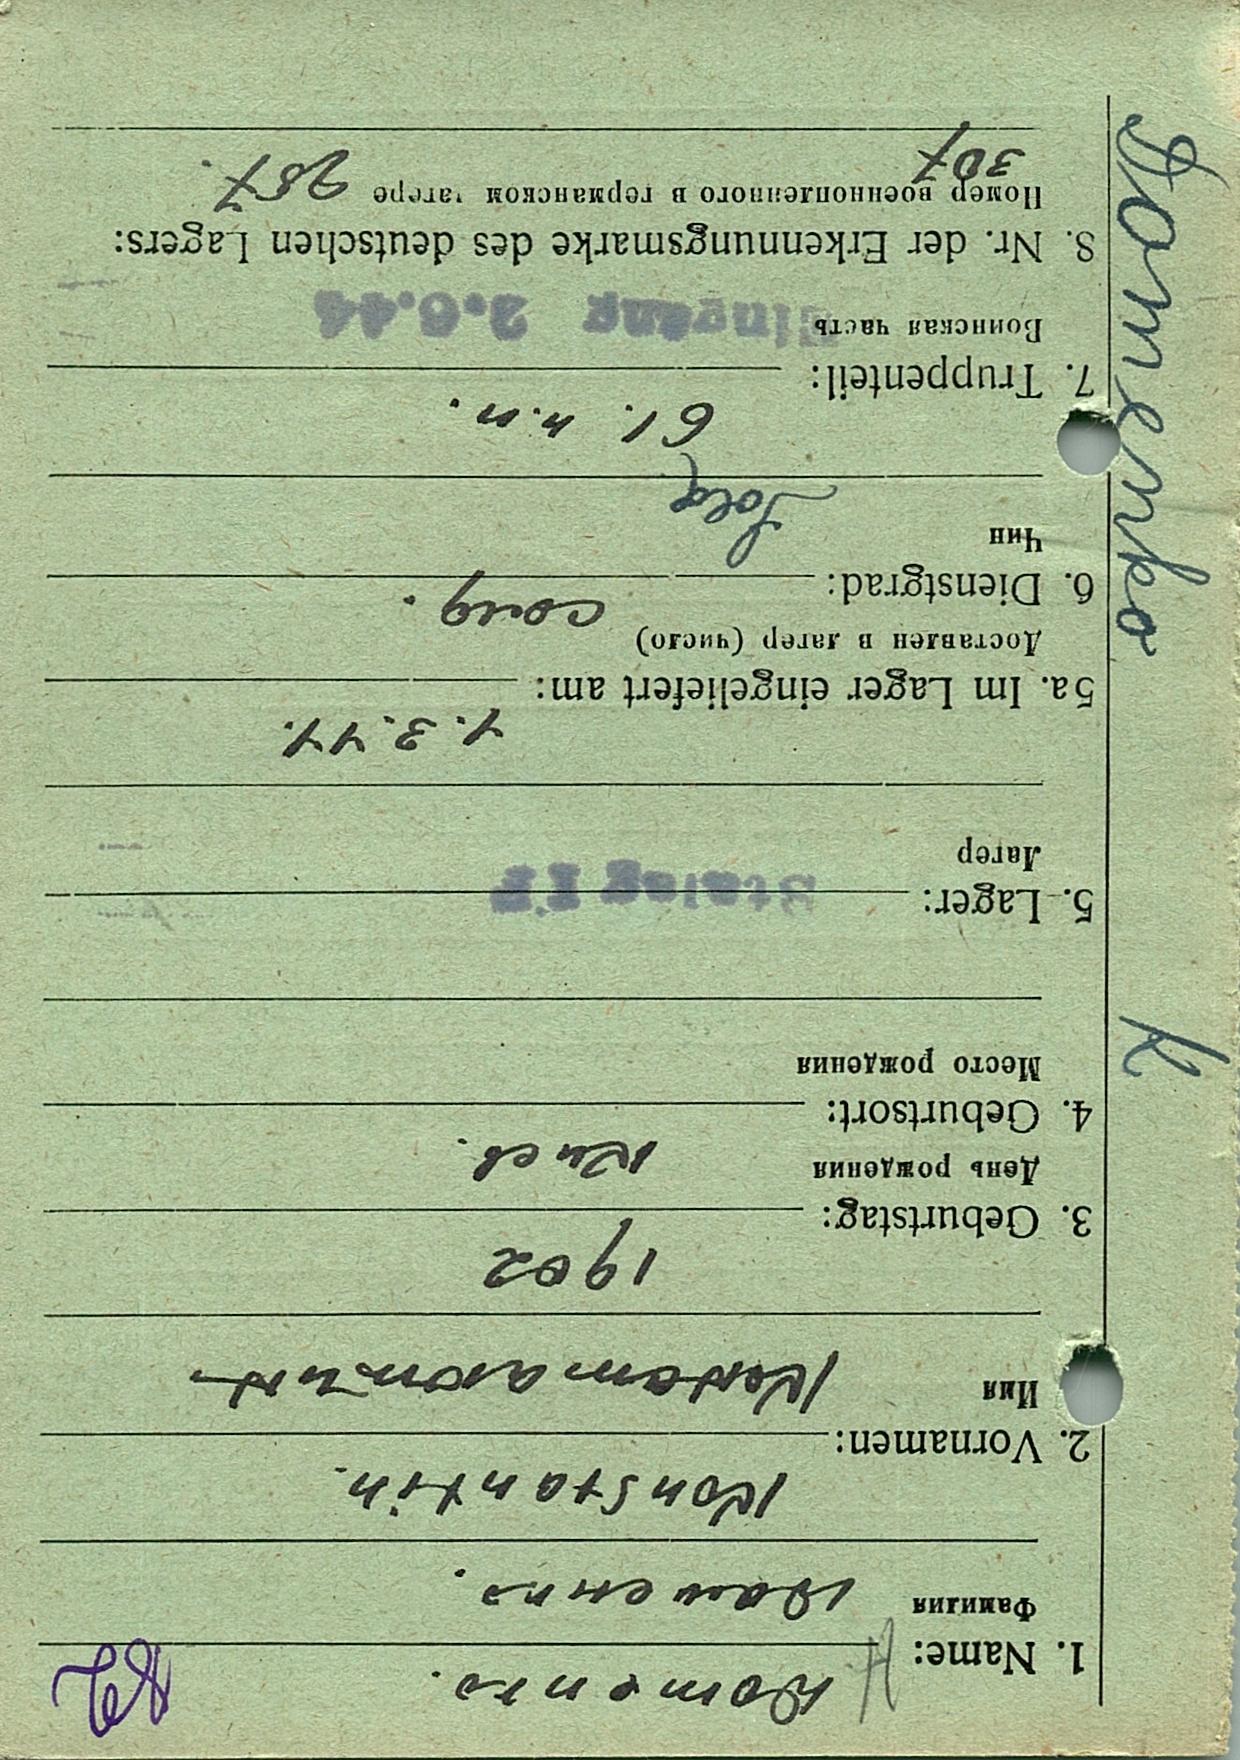 Domenko.
1. Name:
Фамилия Доменко.
Konstantin.
2. Vornamen:
Имя Константин
1902
3. Geburtstag:
День рождения Киев.
4. Geburtsort:
Место рождения
5. Lager: Stalag
Лагерь
5a. Im Lager eingeliefert am: 4.3.44.
Доставлен в лагер (число) солд.
6. Dienstgrad:
Чин Sold
61. п.п.
7. Truppenteil:
Воинская часть Eingang 2.6.44
8. Nr. der Erkennungsmarke des deutschen Lagers:
Номер военнопленного в германском лагере 987.
307
Domenko K